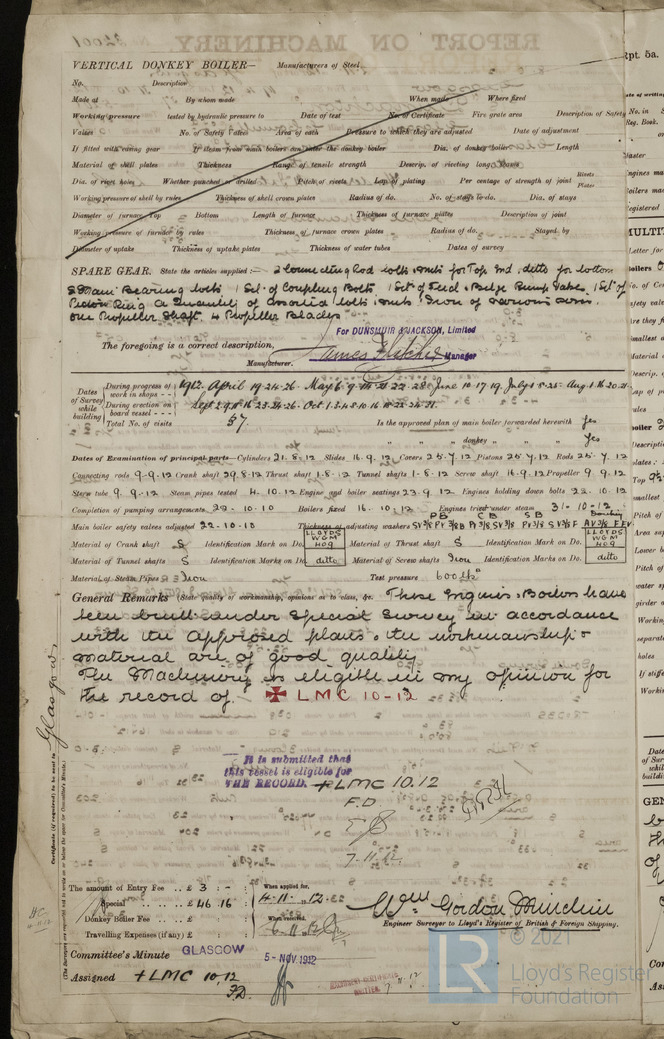 VERTICAL DONKEY BOILER— Manufacturers of Steel
No. Description
Made at By whom made When made Where fixed
Working pressure tested by hydraulic pressure to Date of test No. of Certificate Fire grate area Description of Safety
Valves No. of Safety Valves Area of each Pressure to which they are adjusted Date of adjustment
If fitted with easing gear If steam from main boilers can enter the donkey boiler Dia. of donkey boiler Length
Material of shell plates Thickness Range of tensile strength Descrip. of riveting long. seams
Dia. of rivet holes Whether punched or drilled Pitch of rivets Lap of plating Per centage of strength of joint Rivets Plates
Working pressure of shell by rules Thickness of shell crown plates Radius of do. No. of stays to do. Dia. of stays
Diameter of furnace Top Bottom Length of furnace Thickness of furnace plates Description of joint
Working pressure of furnace by rules Thickness of furnace crown plates Radius of do. Stayed by
Diameter of uptake Thickness of uptake plates Thickness of water tubes Dates of survey
SPARE GEAR. State the articles supplied:— 2 Connecting Rod bolts & nuts for Top End, ditto for bottom
2 Main Bearing bolts 1 Set of Coupling Bolts 1 Set of Feed & Bilge Pump Valves 1 Set of
Piston Ring A Quantity of assorted bolts & nuts & Iron of various sizes.
One Propeller Shaft 4 Propeller Blades
For DUNSMUIR & JACKSON, Limited
The foregoing is a correct description,
Manufacturer. James Manager
Dates of Survey while building
During progress of work in shops - - 1912. April 19-24-26- May 6-9- 22-28 June 10-17-19. July 1-8-25- Aug 1- 20-21-
During erection on board vessel - - - Sept 2-9-11-16-23-24-26- Oct 1-3-4-8-10-16-
Total No. of visits 37. Is the approved plan of main boiler forwarded herewith Yes
" " " donkey " " " Yes
Dates of Examination of principal parts—Cylinders 21.8.12 Slides 16.9.12 Covers 25.7.12 Pistons 25.7.12 Rods 25.7.12
Connecting rods 9-9-12 Crank shaft 29.8.12 Thrust shaft 1-8-12 Tunnel shafts 1-8-12 Screw shaft 16.9.12 Propeller 9.9.12
Stern tube 9.9.12 Steam pipes tested 4.10.12 Engine and boiler seatings 23.9.12 Engines holding down bolts 22.10.12
Completion of pumping arrangements 22.10.10 Boilers fixed 16.10.12 Engines tried under steam 31-10-12
PB CB SB
Main boiler safety valves adjusted 22-10-10 Thickness of adjusting washers
Material of Crank shaft S Identification Mark on Do. LLOYDS WGM HO9 Material of Thrust shaft S Identification Mark on Do. LLOYDS WGM HO9
Material of Tunnel shafts S Identification Marks on Do. ditto Material of Screw shafts Iron Identification Marks on Do. ditto
Material of Steam Pipes Iron Test pressure 600 lbs
General Remarks (State quality of workmanship, opinions as to class, &c. These Engines & Boilers have
been built under special survey in accordance
with the approved plans & the workmanship &
material are of good quality
The Machinery is eligible in my opinion for
the record of ✠ LMC 10-12
It is submitted that
this vessel is eligible for
THE RECORD. + LMC 10.12
F.D.
7.11.12
Glasgow
Certificate (if required) to be sent to
The amount of Entry Fee .. £ 3 : - : When applied for,
Special .. £ 46 : 16 : 4-11-1912
Donkey Boiler Fee .. £ : : When received,
Travelling Expenses (if any) £ : :
Wm Gordon
Engineer Surveyor to Lloyd's Register of British & Foreign Shipping.
Committee's Minute GLASGOW 5-NOV 1912
Assigned + LMC 10,12
F.D.
MACHINERY CERTIFICATE
WRITTEN. 7.11.12
© 2021
LR Lloyd's Register
Foundation
Rpt. 5a.